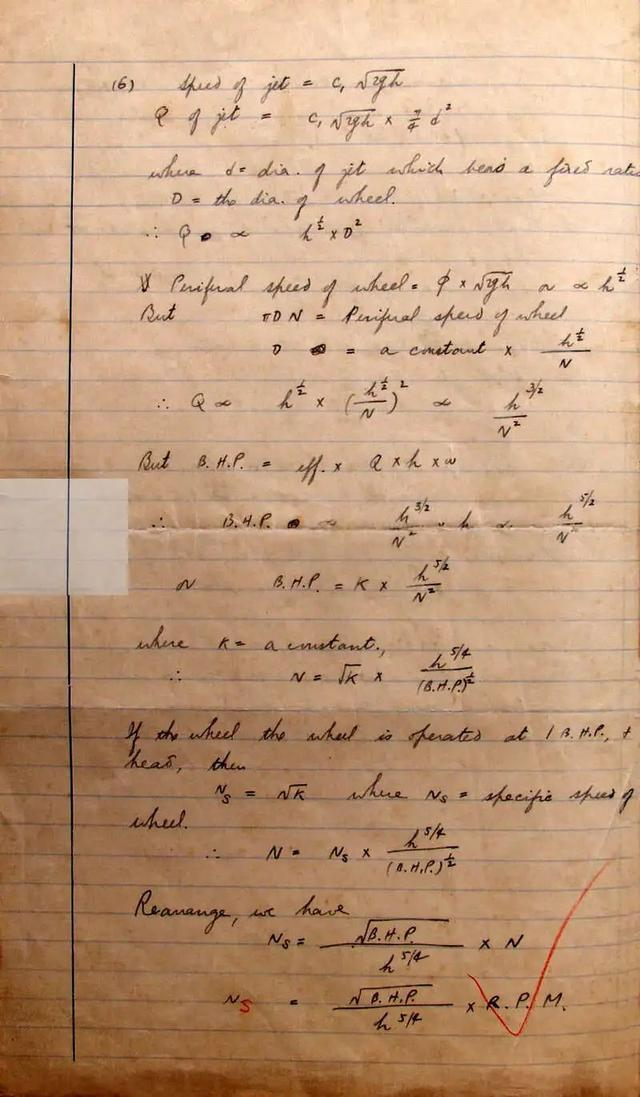 (6) Speed of jet = C, √2gh
Q of jet = C, √2gh × π/4 d²
where d = dia. of jet which bears a fixed ratio
D = the dia. of wheel.
∴ Q ∝ h^½ × D²
Periferal speed of wheel = ϕ × √2gh or ∝ h^½
But πDN = Periferal speed of wheel
D = a constant × h^½/N
∴ Q ∝ h^½ × (h^½/N)² ∝ h^3/2/N²
But B.H.P. = eff. × Q × h × w
∴ B.H.P. ∝ h^3/2/N² × h ∝ h^5/2/N²
or B.H.P. = K × h^5/2/N²
where K = a constant.,
∴ N = √K × h^5/4/(B.H.P.)^½
If the wheel the wheel is operated at 1 B.H.P., +
head, then
N_S = √K where N_S = specific speed of
wheel.
∴ N = N_S × h^5/4/(B.H.P.)^½
Rearrange, we have
N_S = √B.H.P./h^5/4 × N
N_S = √B.H.P./h^5/4 × R.P.M.